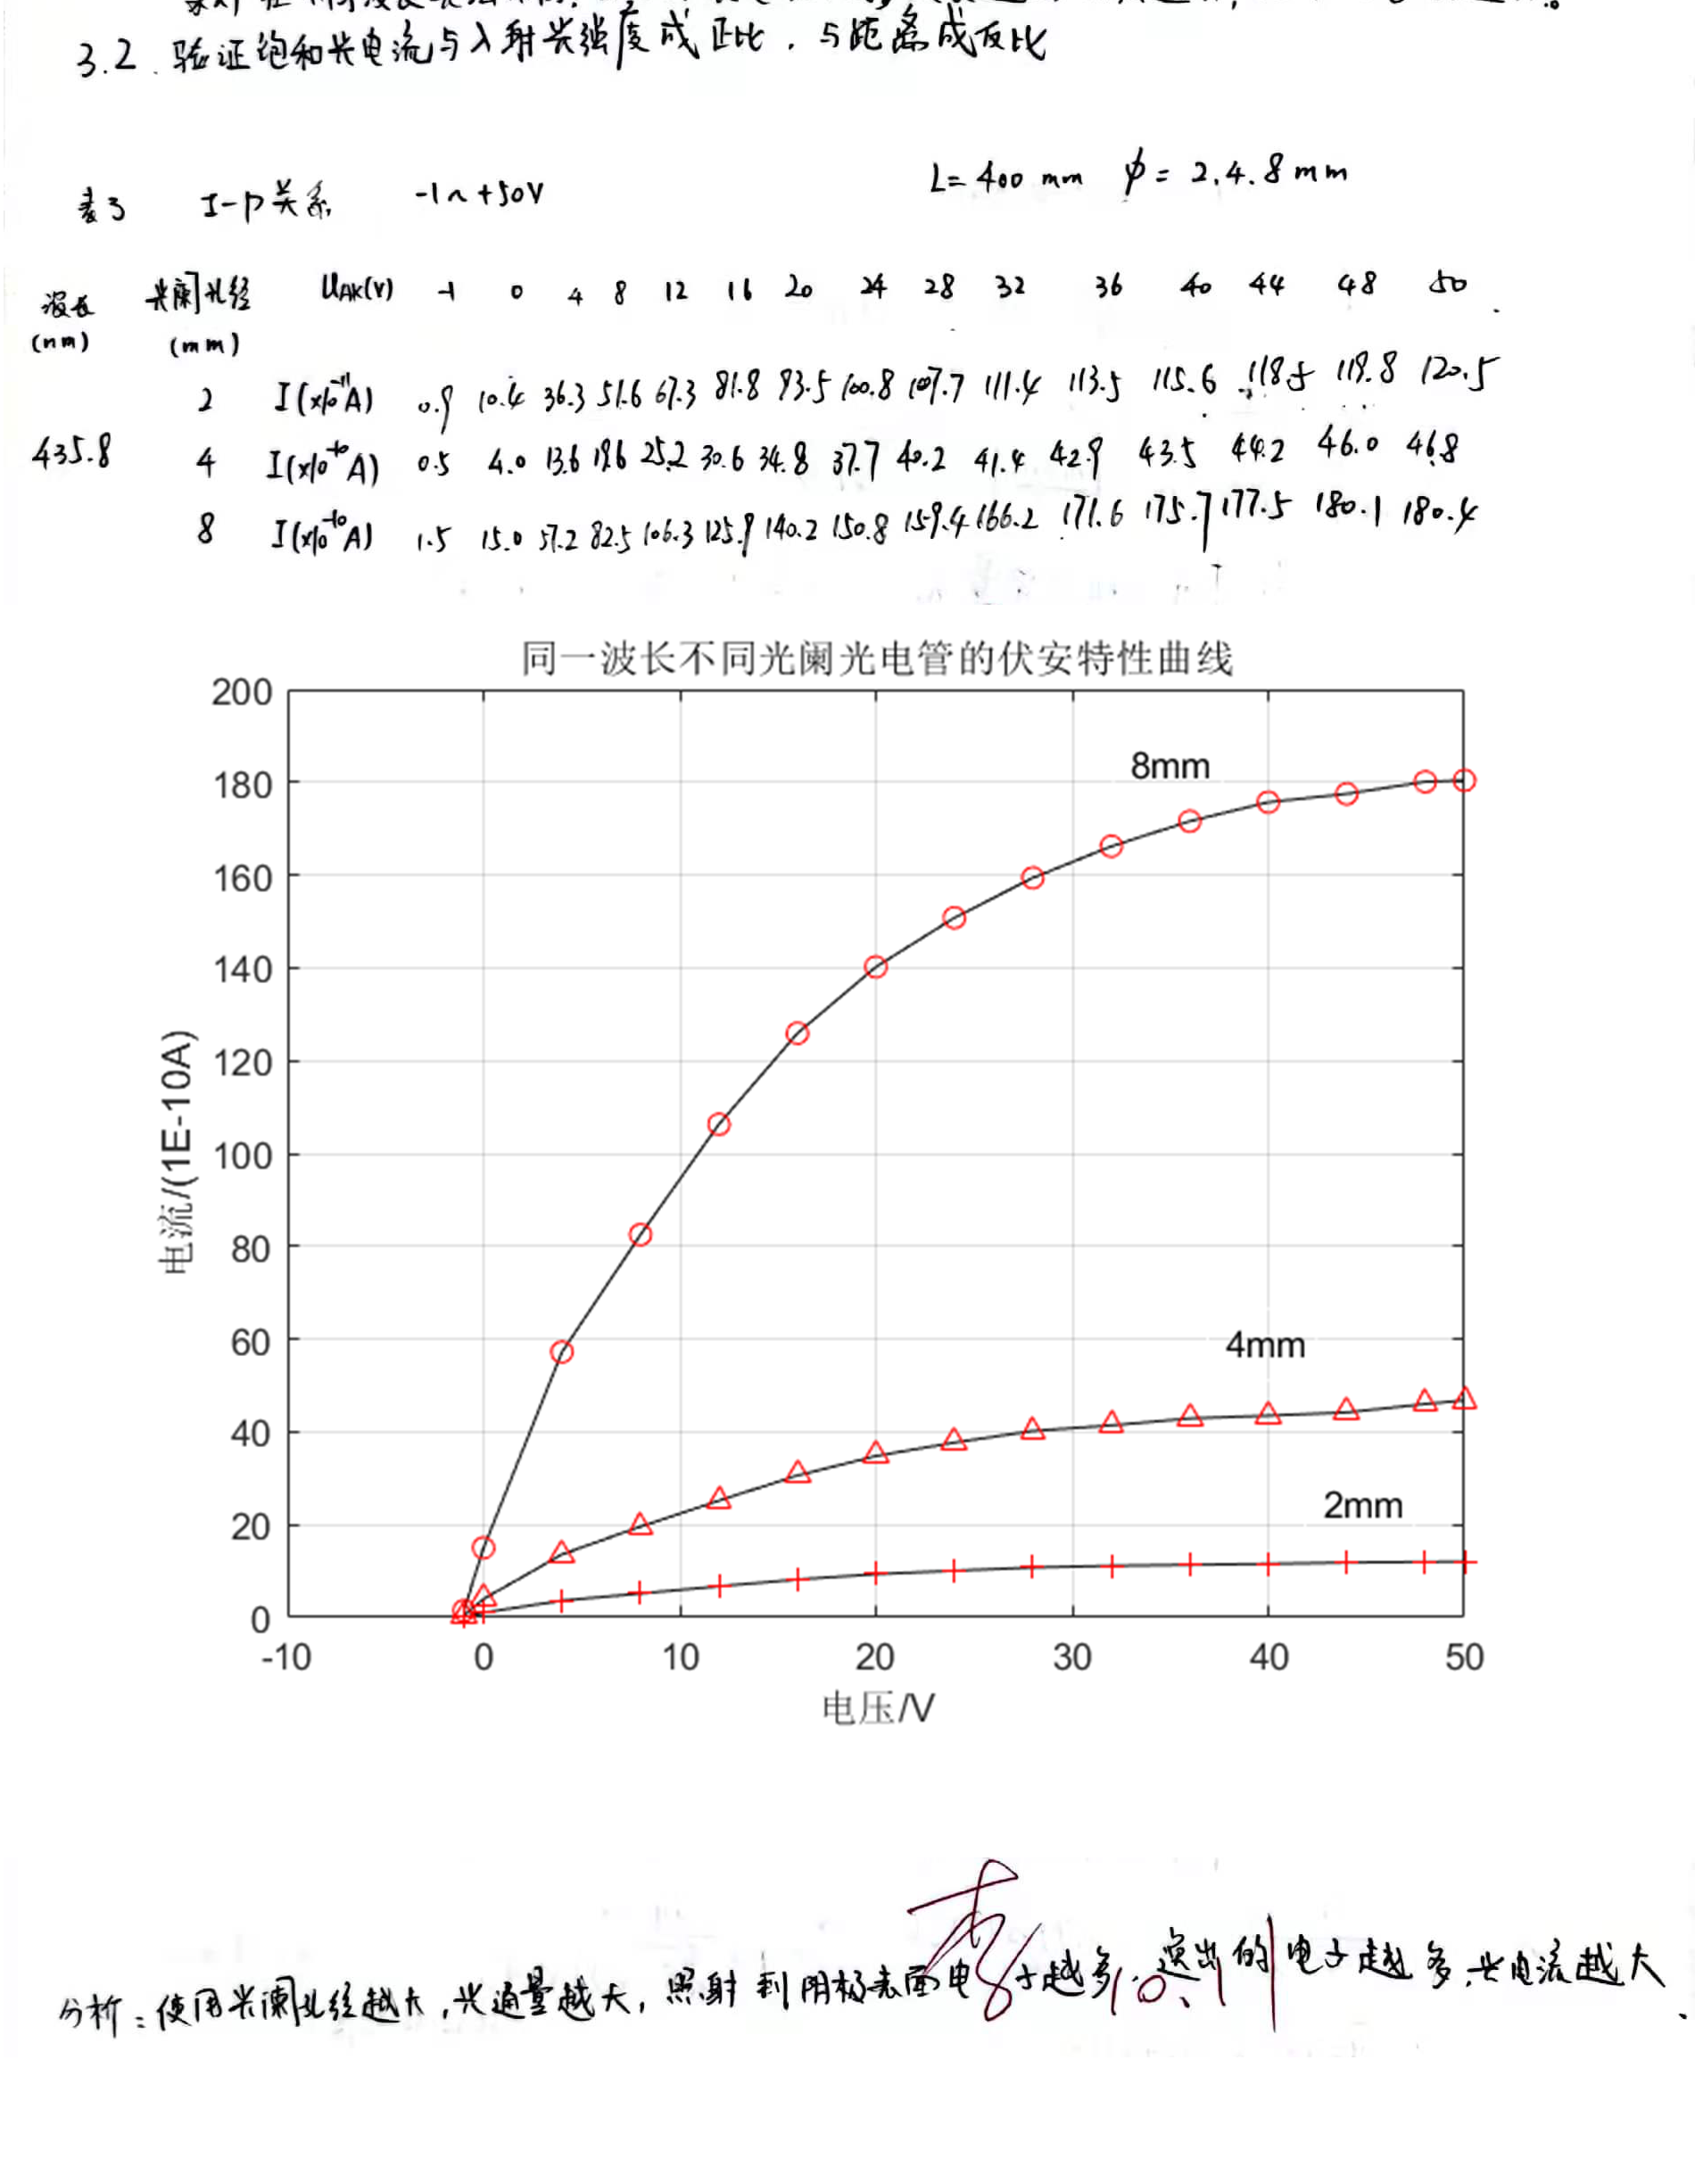 3.2. 验证饱和光电流与入射光强度成正比，与距离成反比
L=400 mm φ=2.4.8mm
表3 I-P关系 -1~+50V
波长(nm) 光阑孔径(mm) UAK(V) -1 0 4 8 12 16 20 24 28 32 36 40 44 48 50
2 I(x10^-11A) 0.9 10.4 36.3 51.6 67.3 81.8 93.5 100.8 107.7 111.4 113.5 115.6 118.5 119.8 120.5
435.8 4 I(x10^-10A) 0.5 4.0 13.6 19.6 25.2 30.6 34.8 37.7 40.2 41.4 42.9 43.5 44.2 46.0 46.8
8 I(x10^-10A) 1.5 15.0 57.2 82.5 106.3 125.9 140.2 150.8 159.4 166.2 171.6 175.7 177.5 180.1 180.4
同一波长不同光阑光电管的伏安特性曲线
200
180
160
140
120
100
80
60
40
20
0
电流/(1E-10A)
8mm
4mm
2mm
-10 0 10 20 30 40 50
电压/V
分析：使用光阑孔径越大，光通量越大，照射到阴极表面电子越多，逸出的电子越多，光电流越大
10.11